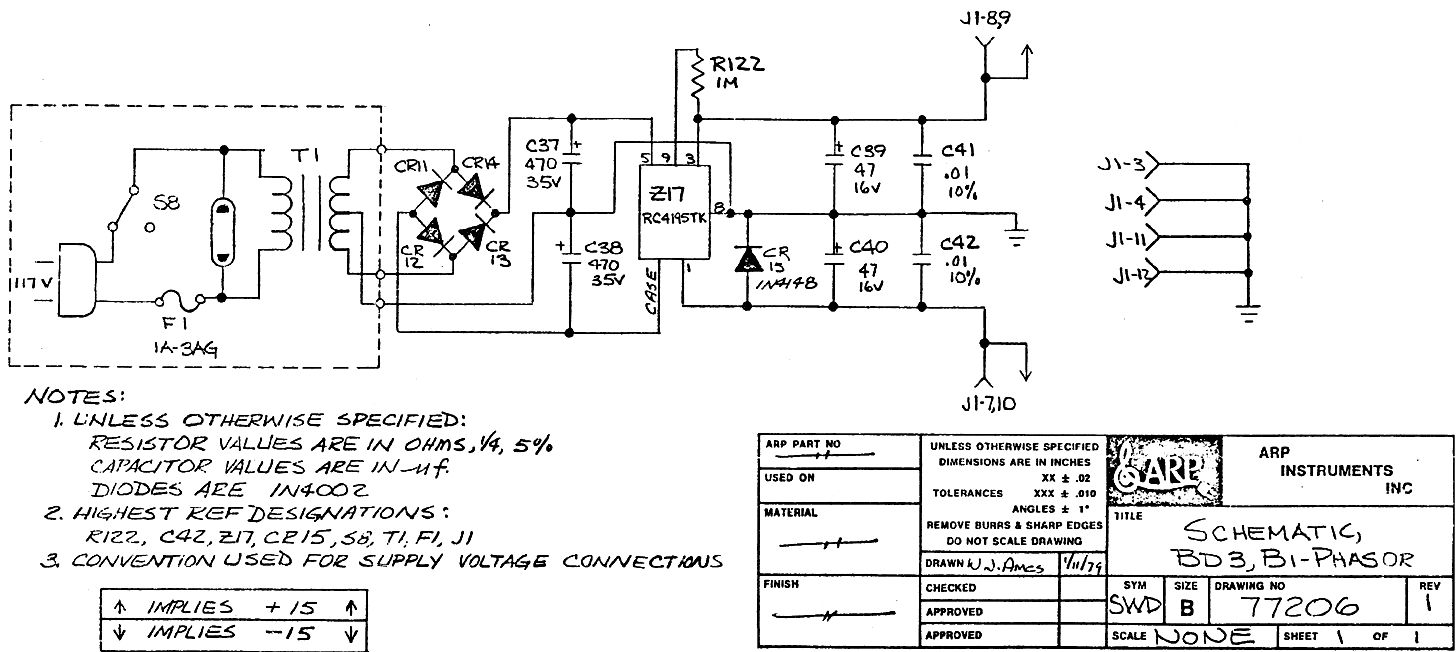 J1-8,9
R122
1M
T1
CR11
CR14
C37
470
35V
5
9
3
C39
47
16V
C41
.01
10%
J1-3
S8
Z17
RC4195TK
8
J1-4
CR
12
CR
13
C38
470
35V
CASE
1
CR
15
1N4148
C40
47
16V
C42
.01
10%
J1-11
J1-12
117V
F1
1A-3AG
J1-7,10
NOTES:
1. UNLESS OTHERWISE SPECIFIED:
RESISTOR VALUES ARE IN OHMS, 1/4, 5%
CAPACITOR VALUES ARE IN uf.
DIODES ARE 1N4002
2. HIGHEST REF DESIGNATIONS:
R122, C42, Z17, CR15, S8, T1, F1, J1
3. CONVENTION USED FOR SUPPLY VOLTAGE CONNECTIONS
↑ IMPLIES +15 ↑
↓ IMPLIES -15 ↓
ARP PART NO
USED ON
MATERIAL
FINISH
UNLESS OTHERWISE SPECIFIED
DIMENSIONS ARE IN INCHES
XX ± .02
TOLERANCES XXX ± .010
ANGLES ± 1°
REMOVE BURRS & SHARP EDGES
DO NOT SCALE DRAWING
DRAWN W.J. Ames 1/11/79
CHECKED
APPROVED
APPROVED
ARP
ARP
INSTRUMENTS
INC
TITLE
SCHEMATIC,
BD3, BI-PHASOR
SYM SWD
SIZE B
DRAWING NO 77206
REV 1
SCALE NONE
SHEET 1 OF 1